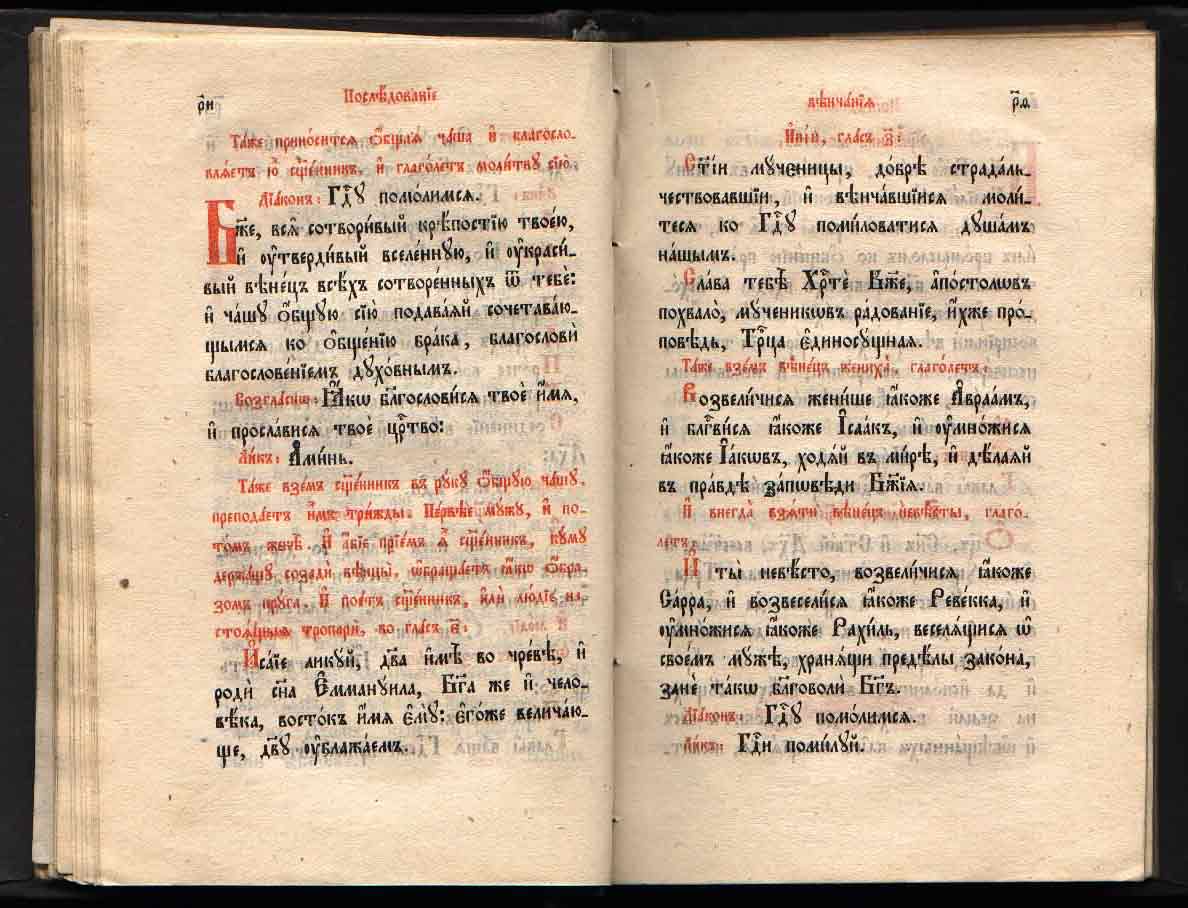 р҃и
Послѣ́дованїе
Та́же прино́сится ѻ҆́бщаѧ ча́ша и҆ благосло-
влѧ́етъ ю҆̀ сщ҃е́нникъ, и҆ глаго́летъ моли́тву сїю̀.
Дїа́конъ: Гд҇ꙋ помо́лимсѧ.
Бж҃е, всѧ̑ сотвори́вый крѣ́постїю твое́ю,
и҆ ᲂу҆тверди́вый вселе́ннꙋю, и҆ ᲂу҆краси́-
вый вѣне́цъ всѣ́хъ сотворе́нныхъ ѿ тебє̀:
и҆ ча́шꙋ ѻ҆́бщꙋю сїю̀ подава́ѧй сочетава́ю-
щымсѧ ко ѻ҆бще́нїю бра́ка, благословѝ
благослове́нїемъ дꙋхо́внымъ.
Возгла́снѡ: Ꙗ҆́кѡ блг҃ослови́сѧ твоѐ и҆́мѧ,
и҆ просла́висѧ твоѐ црⷭ҇тво:
Ли́къ: А҆ми́нь.
Та́же взе́мъ сщ҃е́нникъ въ рꙋ́кꙋ ѻ҆́бщꙋю ча́шꙋ,
преподае́тъ и҆̀мъ три́жды. Пе́рвѣе мꙋ́жꙋ, и҆ по-
то́мъ женѣ̀. И҆ а҆́бїе прїе́мъ ѧ҆̀ сщ҃е́нникъ, кꙋ́мꙋ
держа́щꙋ созадѝ вѣнцы̀, ѡ҆браща́етъ ꙗ҆́кѡ ѻ҆́бра-
зомъ крꙋ́га. И҆ пое́тъ сщ҃е́нникъ, и҆лѝ лю́дїе на-
стоѧ́щыѧ тропарѝ, во гла́съ є҃:
И҆са́їе ликꙋ́й, дв҃а и҆мѣ̀ во чре́вѣ, и҆
родѝ сн҃а Е҆мманꙋи́ла, Бг҃а же и҆ чело-
вѣ́ка, восто́къ и҆́мѧ є҆мꙋ̀: є҆го́же велича́ю-
ще, дв҃ꙋ ᲂу҆блажа́емъ.
вѣнча́нїѧ
р҃ѳ
И҆ны́й, гла́съ з҃:
Ст҃і́и мꙋ́ченицы, до́брѣ страда́ль-
чествовавшїи, и҆ вѣнча́вшїисѧ моли́-
тесѧ ко Гд҇ꙋ поми́ловатисѧ дꙋша́мъ
на́шымъ.
Сла́ва тебѣ̀ Хрⷭ҇тѐ Бж҃е, а҆по́столѡвъ
похвало̀, мꙋ́ченикѡвъ ра́дованїе, и҆́хже про́-
повѣдь, Трⷪ҇ца є҆диносꙋ́щная.
Та́же взе́мъ вѣне́цъ жениха̀, глаго́летъ:
Возвели́чисѧ женишѐ ꙗ҆́коже А҆враа́мъ,
и҆ блгⷭ҇ви́сѧ ꙗ҆́коже І҆саа́къ, и҆ ᲂу҆мно́жисѧ
ꙗ҆́коже І҆а́кѡвъ, ходѧ́й въ ми́рѣ, и҆ дѣ́лаѧй
въ пра́вдѣ за́пѡвѣди Бж҃їѧ.
И҆ внегда̀ взѧ́ти вѣне́цъ невѣ́сты, глаго́-
летъ:
И҆ ты̀ невѣ́сто, возвели́чисѧ ꙗ҆́коже
Са́рра, и҆ возвесели́сѧ ꙗ҆́коже Реве́кка, и҆
ᲂу҆мно́жисѧ ꙗ҆́коже Рахи́ль, веселѧ́щисѧ ѡ҆
свое́мъ мꙋ́жѣ, хранѧ́щи предѣ́лы зако́на,
занѐ та́кѡ блг҃оволѝ Бг҃ъ.
Дїа́конъ: Гд҇ꙋ помо́лимсѧ.
Ли́къ: Гд҇и поми́лꙋй.